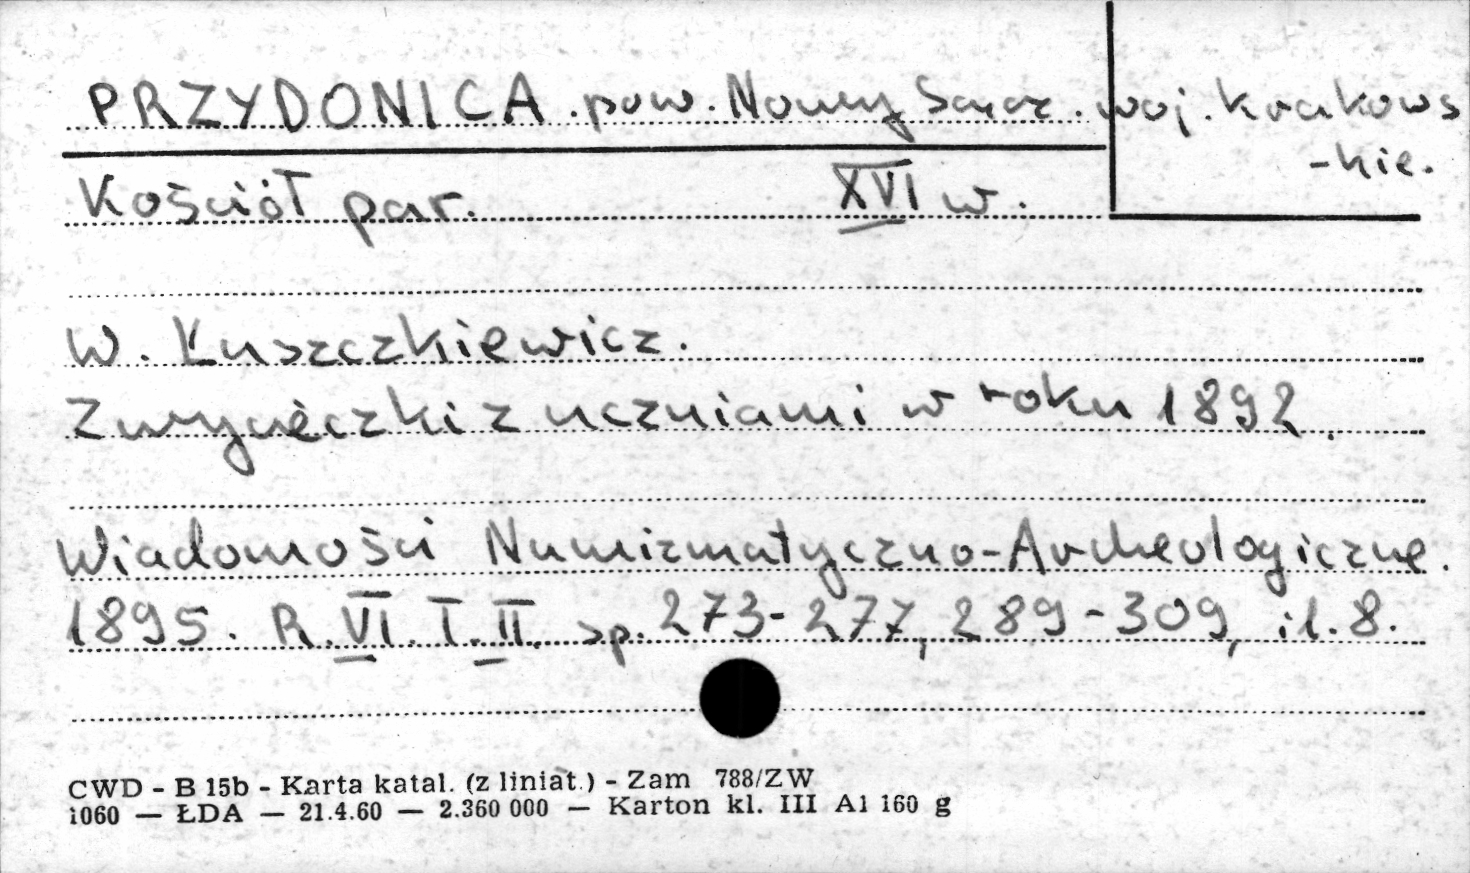 PRZYDONICA. pow. Nowy Sącz. woj. krakows
-kie.
Kościół par. XVI w.
W. Łuszczkiewicz.
Z wycieczki z uczniami w roku 1892.
Wiadomości Numizmatyczno-Archeologiczne.
1895. R. VI. T. II. sp. 273-277, 289-309, il. 8.
CWD - B 15b - Karta katal. (z liniat.) - Zam 788/ZW
1060 — ŁDA — 21.4.60 — 2.360 000 — Karton kl. III A1 160 g